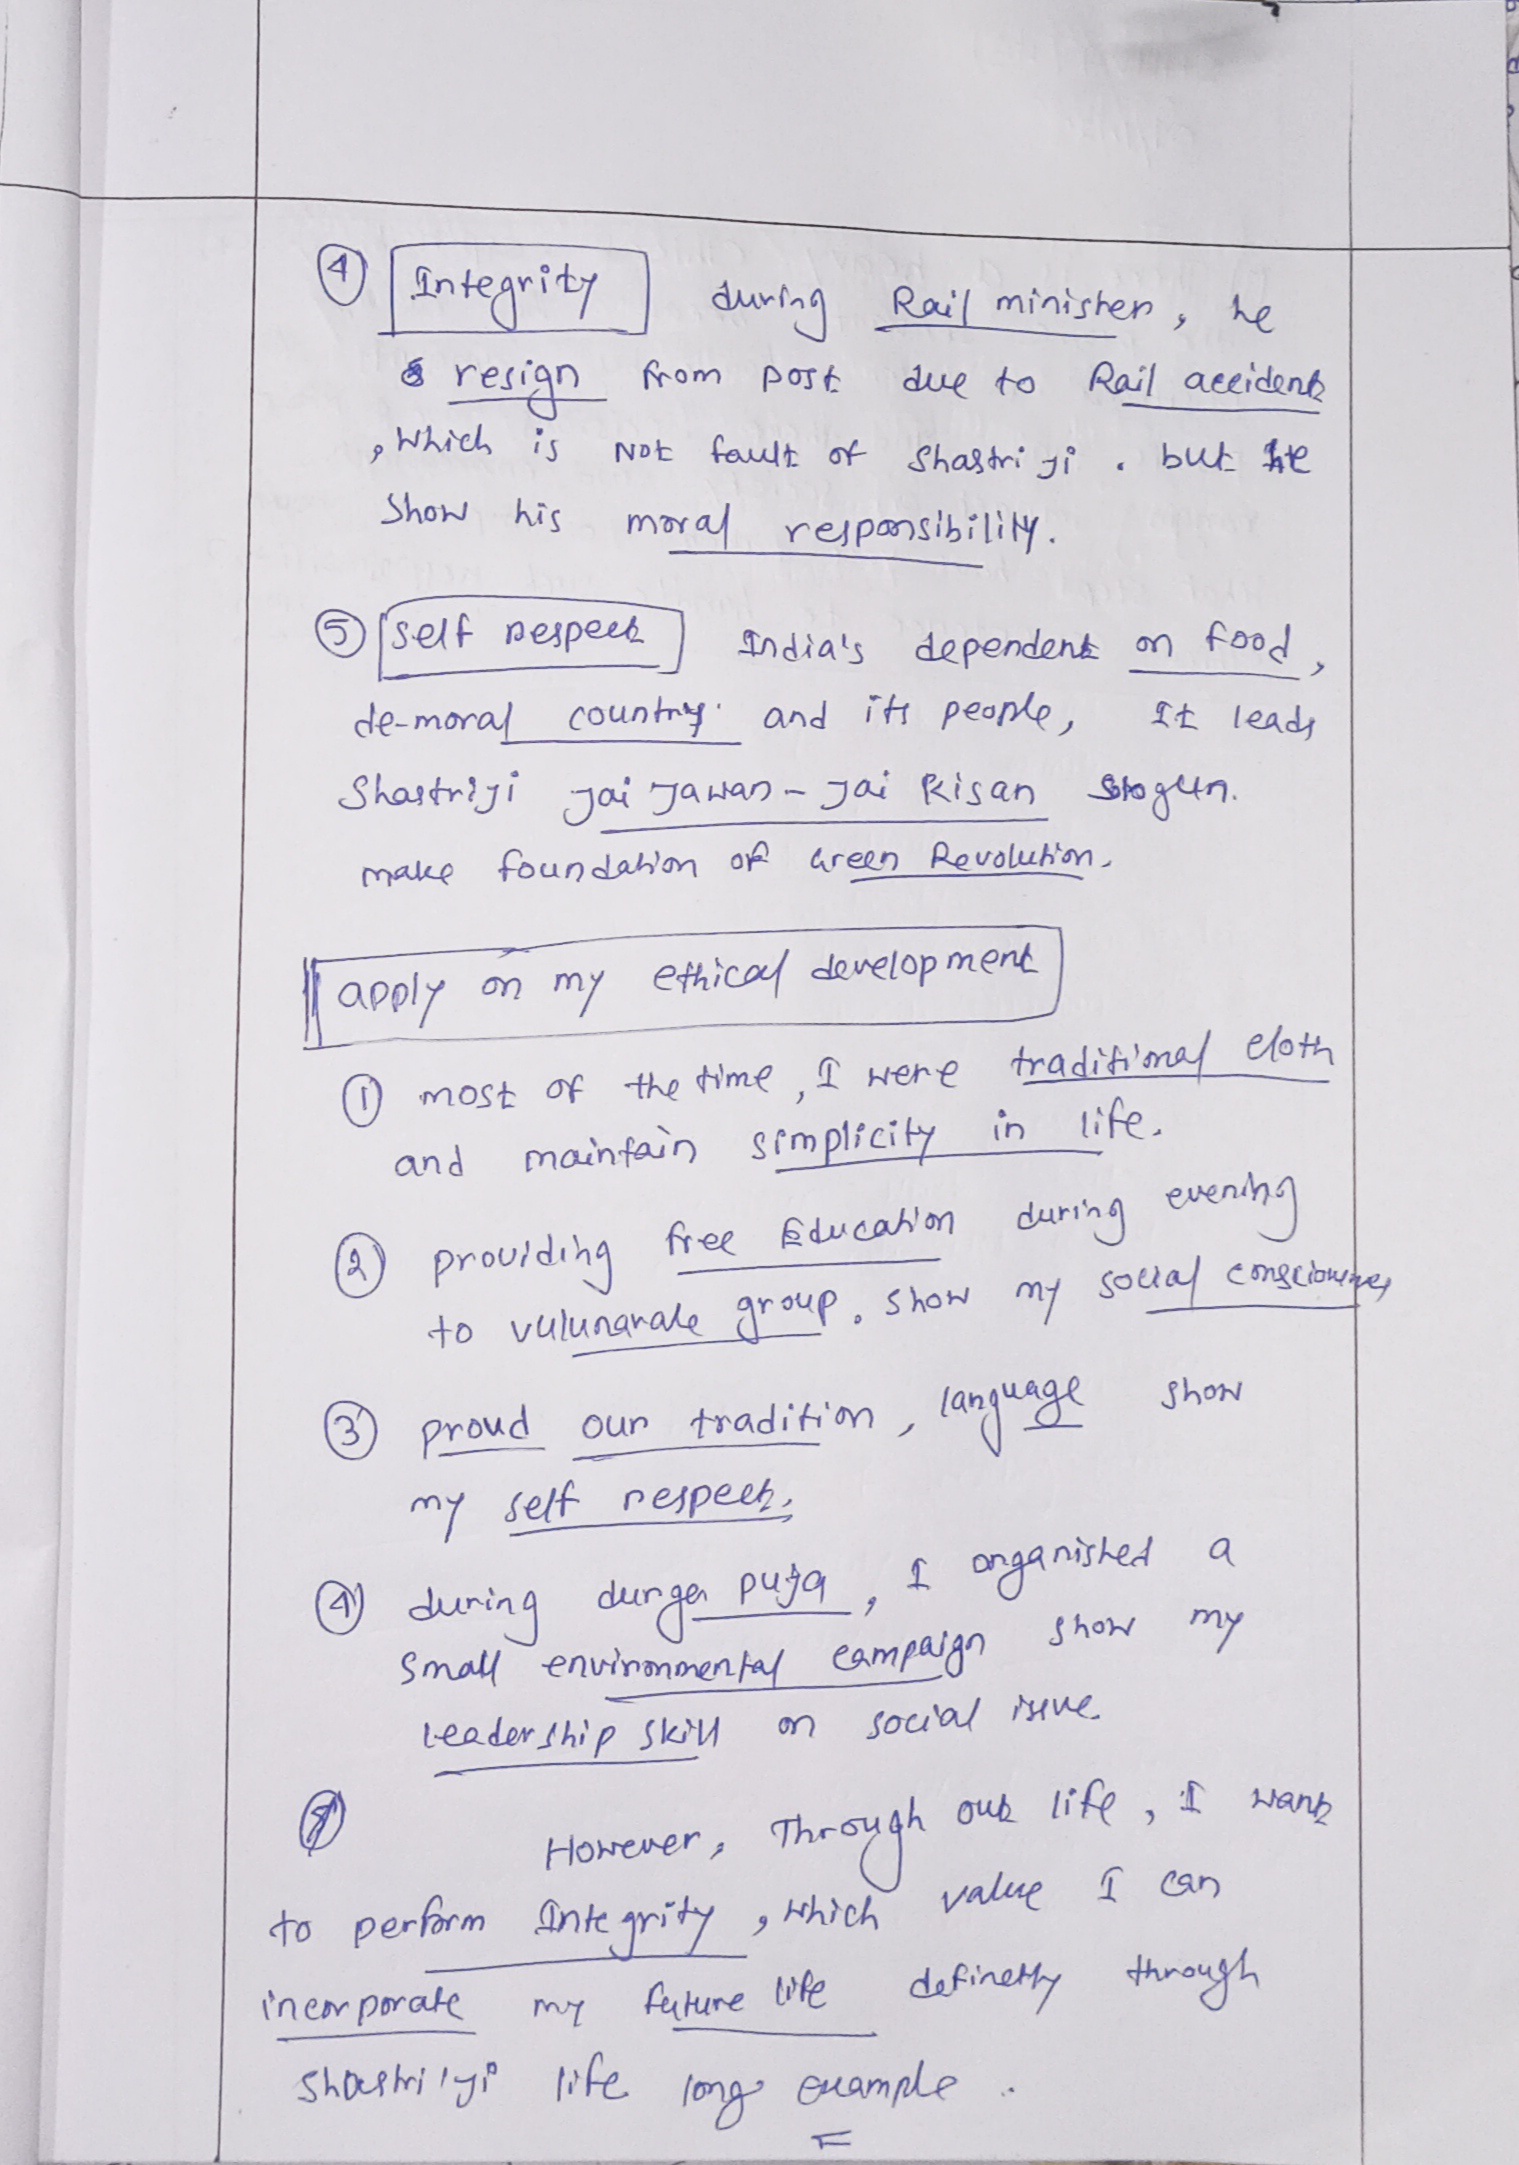 ④ Integrity during Rail minister, he
resign from post due to Rail accident
, which is Not fault of Shastri ji. but He
Show his moral responsibility.
⑤ self respect India's dependent on food,
de-moral country. and its people, It leads
Shastriji Jai Jawan - Jai Kisan slogun.
make foundation of Green Revolution.
apply on my ethical development
① most of the time, I were traditional cloth
and maintain simplicity in life.
② providing free Education during evening
to vulunarale group. show my social consciousness
③ proud our tradition, language show
my self respect.
④ during durga puja, I organished a
small environmental campaign show my
leadership skill on social issue
However, Through out life, I want
to perform Integrity, which value I can
incorporate my future life definetly through
Shastri'ji life long example.